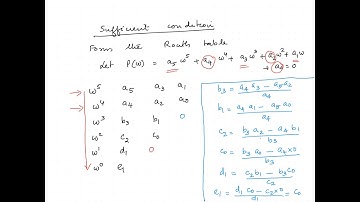 Sufficient condition
Form the Routh table
Let P(ω) = a5 ω^5 + a4 ω^4 + a3 ω^3 + a2 ω^2 + a1 ω
+ a0 = 0
ω^5 a5 a3 a1
ω^4 a4 a2 a0
ω^3 b3 b1 0
ω^2 c2 c0
ω^1 d1 0
ω^0 e1
b3 = (a4 a3 - a5 a2) / a4
b1 = (a4 a1 - a5 a0) / a4
c2 = (b3 a2 - a4 b1) / b3
c0 = (b3 a0 - a4×0) / b3
d1 = (c2 b1 - b3 c0) / c2
e1 = (d1 c0 - c2×0) / d1 = c0